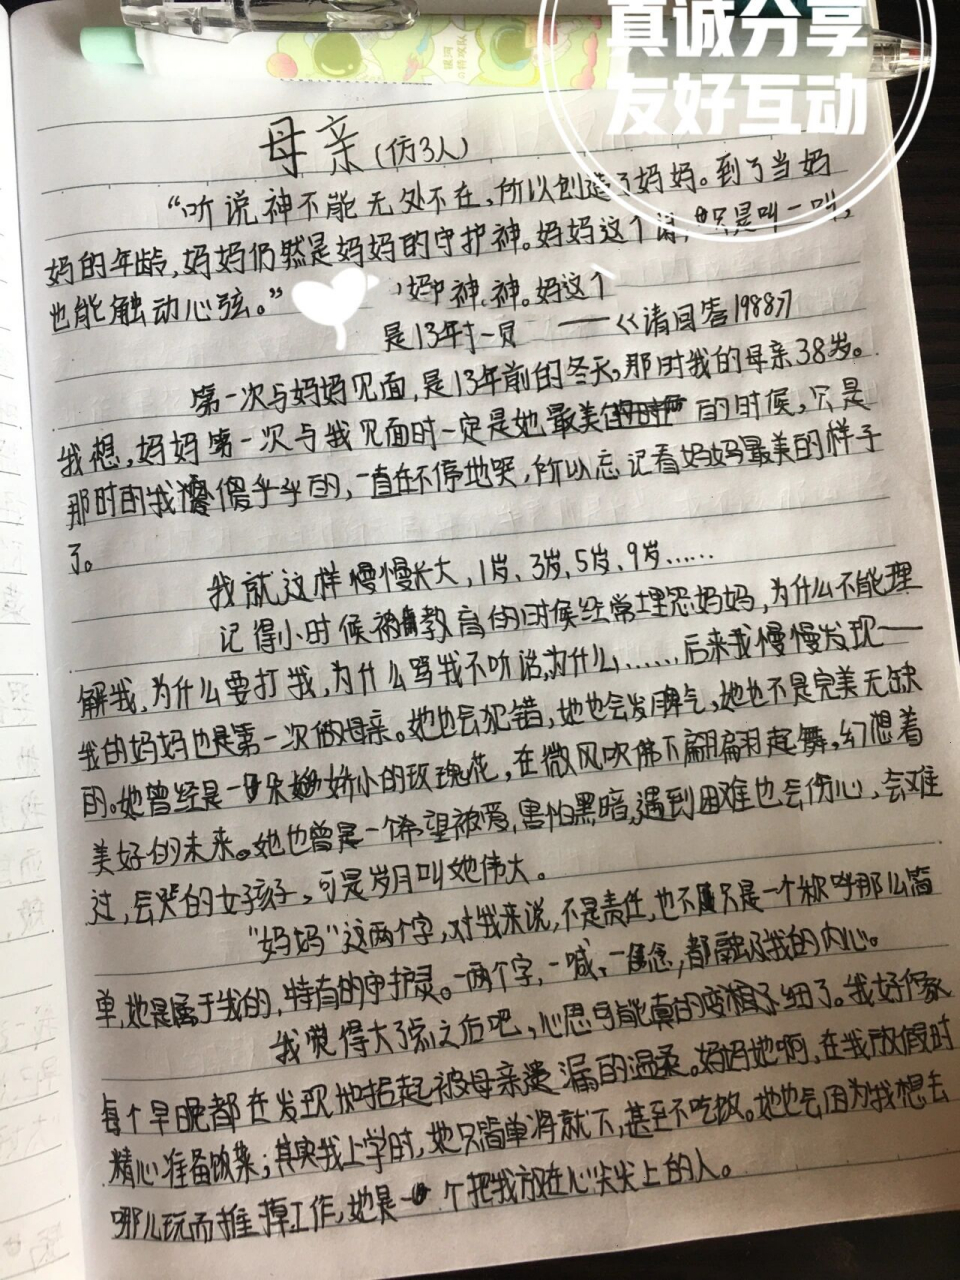 真诚分享
友好互动
母亲(仿3人)
“听说神不能无处不在,所以创造了妈妈。到了当妈
妈的年龄,妈妈仍然是妈妈的守护神。妈妈这个词,只是叫一叫,
也能触动心弦。”
神、神。妈这个
是13年
——《请回答1988》
第一次与妈妈见面,是13年前的冬天,那时我的母亲38岁。
我想,妈妈第一次与我见面时一定是她最美的时候,只是
那时的我傻乎乎的,一直在不停地哭,所以忘记看妈妈最美的样子
了。
我就这样慢慢长大,1岁、3岁、5岁、9岁……
记得小时候被教育的时候经常埋怨妈妈,为什么不能理
解我,为什么要打我,为什么骂我不听话,为什么……后来我慢慢发现——
我的妈妈也是第一次做母亲。她也会犯错,她也会发脾气,她也不是完美无缺
的。她曾经是一朵娇小的玫瑰花,在微风吹佛下翩翩起舞,幻想着
美好的未来。她也曾是一个希望被爱,害怕黑暗,遇到困难也会伤心,会难
过,会哭的女孩子,可是岁月叫她伟大。
“妈妈”这两个字,对我来说,不是责任,也不只是一个称呼那么简
单,她是属于我的,特有的守护灵。一两个字,一喊、一念,都融及我的内心。
我觉得大了点之后吧,心思可能真的变相了细了。我好像
每个早晚都在发现她拾起被母亲遗漏的温柔。妈妈她啊,在我放假时
精心准备饭菜;其实我上学时,她只简单将就下,甚至不吃饭。她也会因为我想去
哪儿玩而推掉工作,她是一个把我放在心尖尖上的人。